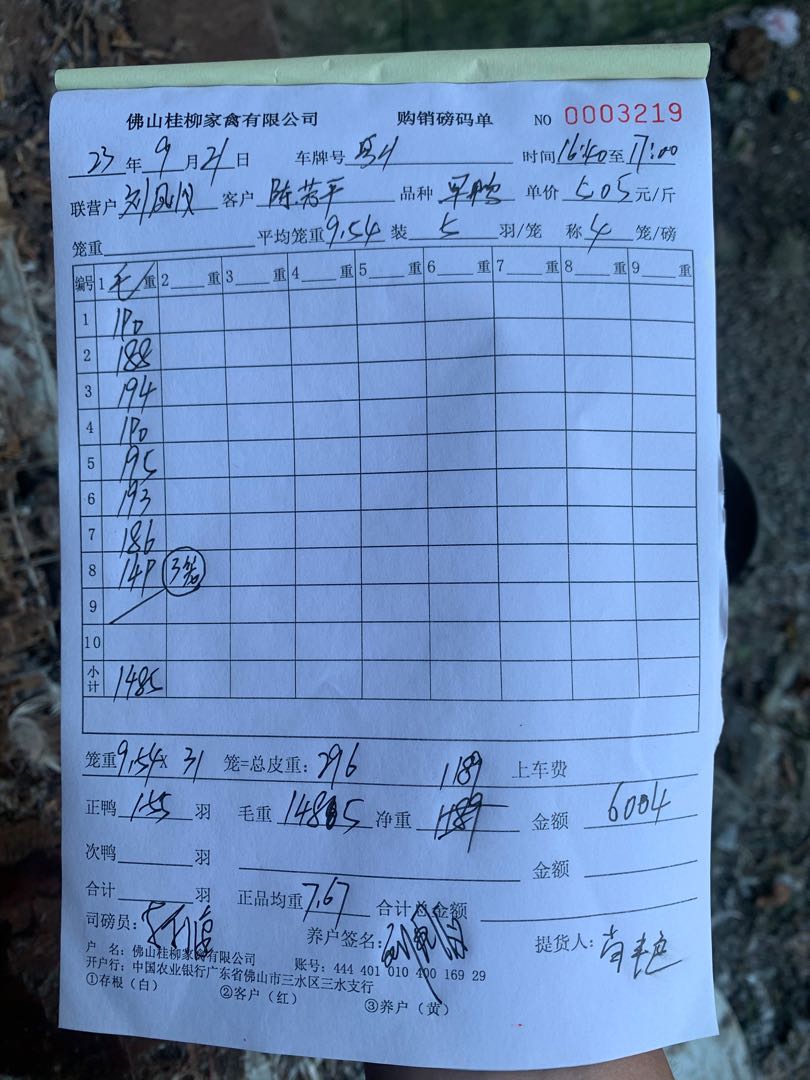 佛山桂柳家禽有限公司 购销磅码单 NO 0003219
23 年 9 月 21 日 车牌号 时间 16:40 至 17:00
联营户 刘凤仪 客户 陈若平 品种 单价 5.05 元/斤
笼重 平均笼重 9.54 装 5 羽/笼 称 4 笼/磅
编号 1 毛 重 2 重 3 重 4 重 5 重 6 重 7 重 8 重 9 重
1 190
2 188
3 194
4 190
5 195
6 193
7 186
8 149 3笼
9
10
小计 1485
笼重 9.54 × 31 笼=总皮重: 296 1189 上车费
正鸭 155 羽 毛重 1485 净重 1189 金额 6004
次鸭 羽 金额
合计 羽 正品均重 7.67 合计总金额
司磅员: 养户签名: 提货人:
户 名: 佛山桂柳家禽有限公司 账号: 444 401 010 400 169 29
开户行: 中国农业银行广东省佛山市三水区三水支行
①存根（白） ②客户（红） ③养户（黄）